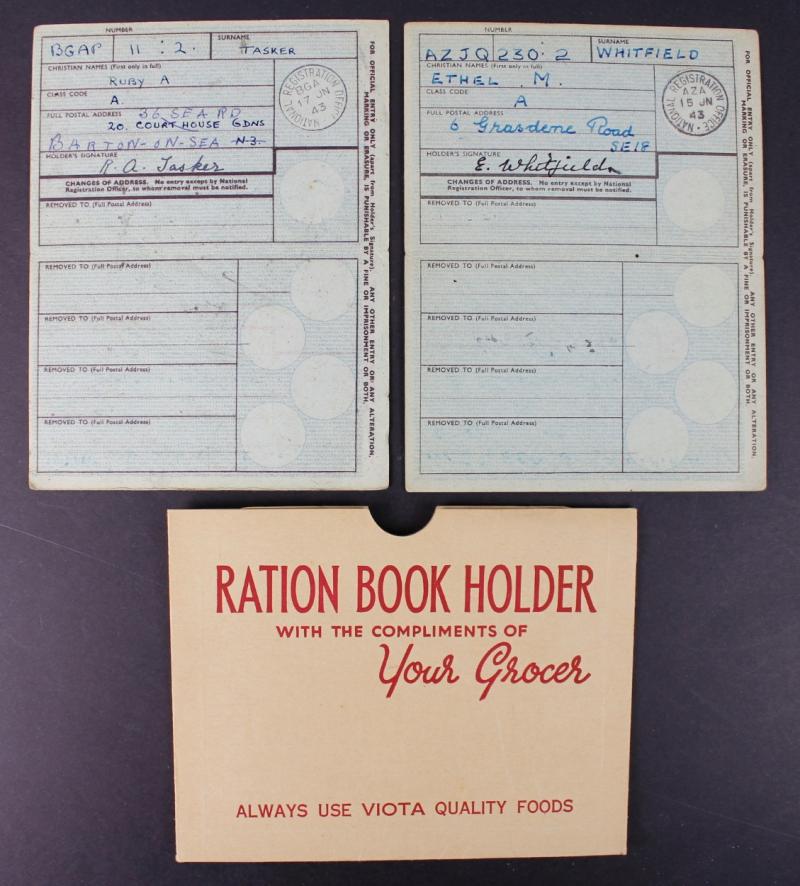 NUMBER
SURNAME
BGAP 11 : 2. TASKER
CHRISTIAN NAMES (First only in full)
RUBY A
CLASS CODE
A.
FULL POSTAL ADDRESS 36 SEA RD
20. COURT HOUSE GDNS
BARTON-ON-SEA N.3.
HOLDER'S SIGNATURE
R. A. Tasker
CHANGES OF ADDRESS. No entry except by National
Registration Officer, to whom removal must be notified.
REMOVED TO (Full Postal Address)
REMOVED TO (Full Postal Address)
REMOVED TO (Full Postal Address)
REMOVED TO (Full Postal Address)
REMOVED TO (Full Postal Address)
NATIONAL REGISTRATION OFFICE
BGA
17 JN
43
FOR OFFICIAL ENTRY ONLY (apart from Holder's Signature). ANY OTHER ENTRY OR ANY ALTERATION,
MARKING OR ERASURE, IS PUNISHABLE BY A FINE OR IMPRISONMENT OR BOTH.
NUMBER
SURNAME
AZJQ 230 : 2 WHITFIELD
CHRISTIAN NAMES (First only in full)
ETHEL M.
CLASS CODE
A
FULL POSTAL ADDRESS
6 Grasdene Road
SE18
HOLDER'S SIGNATURE
E. Whitfield
CHANGES OF ADDRESS. No entry except by National
Registration Officer, to whom removal must be notified.
REMOVED TO (Full Postal Address)
REMOVED TO (Full Postal Address)
REMOVED TO (Full Postal Address)
REMOVED TO (Full Postal Address)
REMOVED TO (Full Postal Address)
NATIONAL REGISTRATION OFFICE
AZA
15 JN
43
FOR OFFICIAL ENTRY ONLY (apart from Holder's Signature). ANY OTHER ENTRY OR ANY ALTERATION,
MARKING OR ERASURE, IS PUNISHABLE BY A FINE OR IMPRISONMENT OR BOTH.
RATION BOOK HOLDER
WITH THE COMPLIMENTS OF
Your Grocer
ALWAYS USE VIOTA QUALITY FOODS